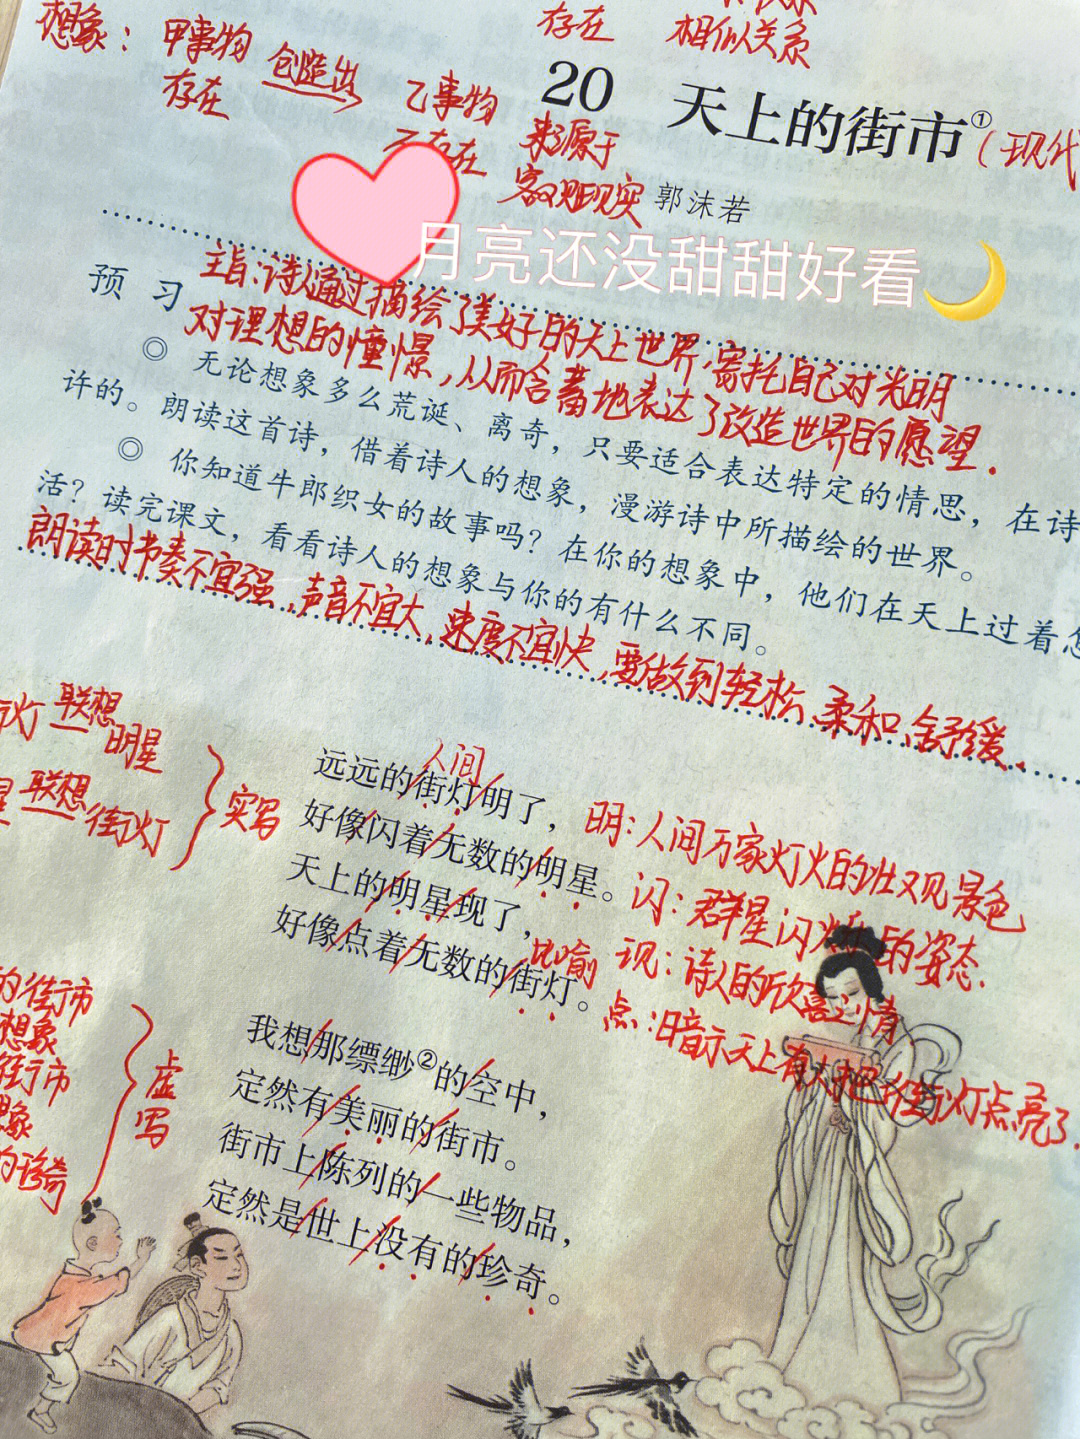 想象：甲事物 创造出 乙事物
存在
不存在
来源于
客观现实
存在
相似关系
20 天上的街市①
（现代
郭沫若
月亮还没甜甜好看🌙
预习
主旨：诗人通过描绘了美好的天上世界，寄托自己对光明
对理想的憧憬，从而含蓄地表达了改造世界的愿望．
◎ 无论想象多么荒诞、离奇，只要适合表达特定的情思，在诗
许的。朗读这首诗，借着诗人的想象，漫游诗中所描绘的世界。
◎ 你知道牛郎织女的故事吗？在你的想象中，他们在天上过着
活？读完课文，看看诗人的想象与你的有什么不同。
朗读时节奏不宜强，声音不宜大，速度不宜快，要做到轻松、柔和、舒缓．
灯 联想 明星
星 联想 街灯
实写
人间
远远的街灯明了，
好像闪着无数的明星。
天上的明星现了，
好像点着无数的街灯。
比喻
明：人间万家灯火的壮观景色
闪：群星闪烁的姿态．
现：诗人的欣喜之情
点：暗示天上有人把街灯点亮了．
的街市
想象
街市
想象
的珍奇
虚写
我想那缥缈②的空中，
定然有美丽的街市。
街市上陈列的一些物品，
定然是世上没有的珍奇。